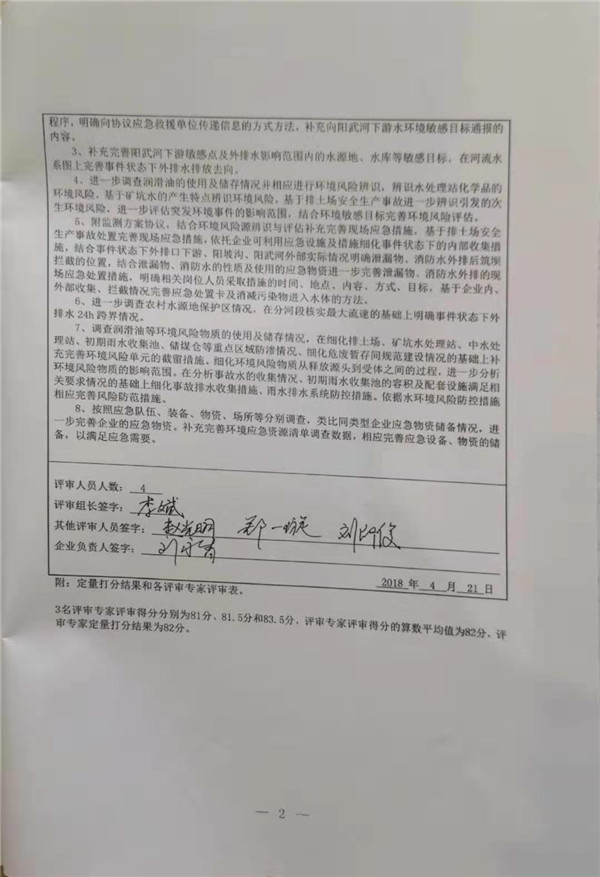 程序，明确向协议应急救援单位传递信息的方式方法，补充向阳武河下游水环境敏感目标通报的
内容。
3、补充完善阳武河下游敏感点及外排水影响范围内的水源地、水库等敏感目标，在河流水
系图上完善事件状态下外排水排放去向。
4、进一步调查润滑油的使用及储存情况并相应进行环境风险辨识，辨识水处理站化学品的
环境风险，基于矿坑水的产生特点辨识环境风险，基于排土场安全生产事故进一步辨识引发的次
生环境风险，进一步评估突发环境事件的影响范围，结合环境敏感目标完善环境风险评估。
5、附监测方案协议，结合环境风险源辨识与评估补充完善现场应急措施，基于排土场安全
生产事故处置完善现场应急措施，依托企业可利用应急设施及措施细化事件状态下的内部收集措
施，结合事件状态下外排口下游、阳坡沟、阳武河外部实际情况明确泄漏物、消防水外排后筑坝
拦截的位置，结合泄漏物、消防水的性质及使用的应急物资进一步完善泄漏物、消防水外排的现
场应急处置措施，明确相关岗位人员采取措施的时间、地点、内容、方式、目标，基于企业内、
外部收集、拦截情况完善应急处置卡及消减污染物进入水体的方法。
6、进一步调查农村水源地保护区情况，在分河段核实最大流速的基础上明确事件状态下外
排水24h跨界情况。
7、调查润滑油等环境风险物质的使用及储存情况，在细化排土场、矿坑水处理站、中水处
理站、初期雨水收集池、储煤仓等重点区域防渗情况、细化危废暂存间规范建设情况的基础上补
充完善环境风险单元的截留措施，细化环境风险物质从释放源头到受体之间的过程，进一步分析
环境风险物质的影响范围。在分析事故水的收集情况、初期雨水收集池的容积及配套设施满足相
关要求情况的基础上细化事故排水收集措施、雨水排水系统防控措施。依据水环境风险防控措施
相应完善风险防范措施。
8、按照应急队伍、装备、物资、场所等分别调查，类比同类型企业应急物资储备情况，进一
步完善企业的应急物资。补充完善环境应急资源清单调查数据，相应完善应急设备、物资的储
备，以满足应急需要。
评审人员人数：4
评审组长签字：李斌
其他评审人员签字：赵光明 郑一璇
企业负责人签字：
2018 年 4 月 21 日
附：定量打分结果和各评审专家评审表。
3名评审专家评审得分分别为81分、81.5分和83.5分，评审专家评审得分的算数平均值为82分，评
审专家定量打分结果为82分。
— 2 —